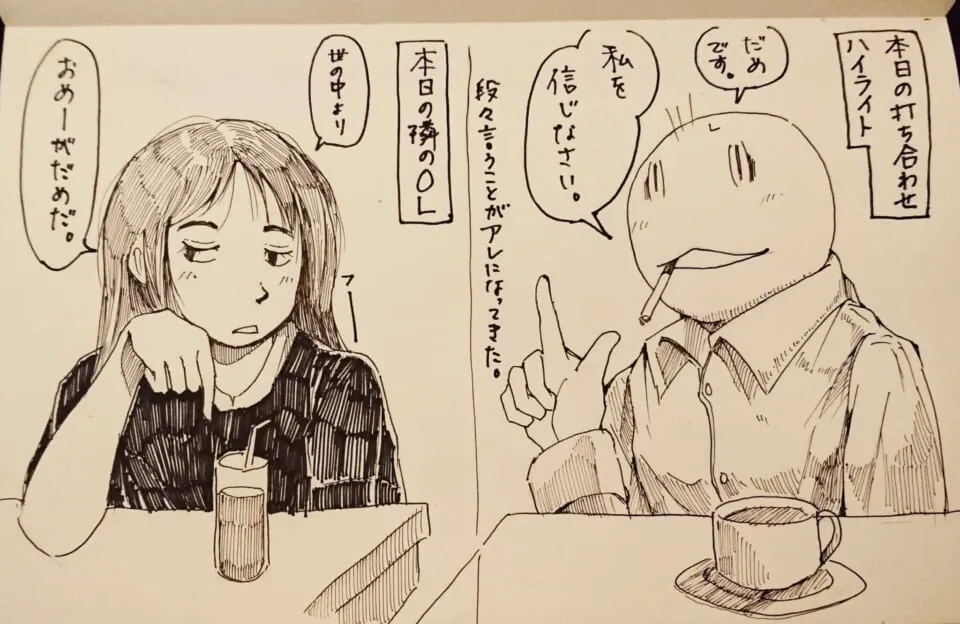 本日の打ち合わせ
ハイライト
だめ
です。
私を
信じなさい。
段々言うことがアレになってきた。
本日の隣のOL
世の中より
フー
おめーがだめだ。